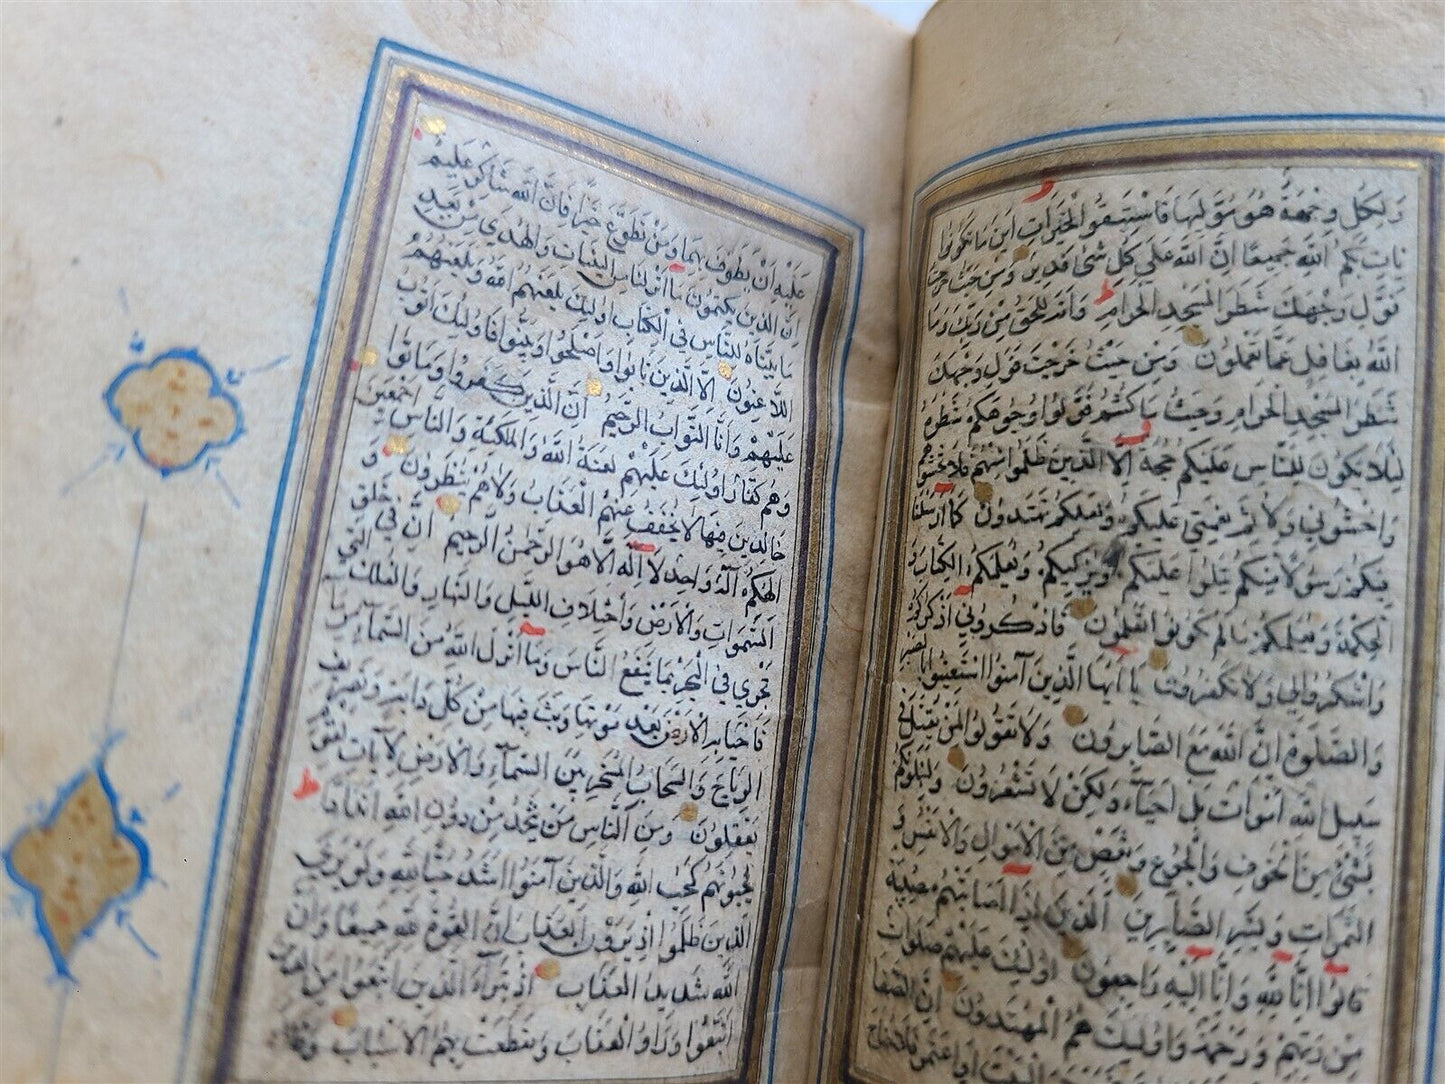 ولكل وجهة هو موليها فاستبقوا الخيرات اين ما تكونوا
يات بكم الله جميعا ان الله علي كل شئ قدير ومن حيث خرجت
فول وجهك شطر المسجد الحرام وانه للحق من ربك وما
الله بغافل عما تعملون ومن حيث خرجت فول وجهك
شطر المسجد الحرام وحيث ما كنتم فولوا وجوهكم شطره
ليلا يكون للناس عليكم حجة الا الذين ظلموا منهم فلا تخشوهم
واخشوني ولاتم نعمتي عليكم ولعلكم تهتدون كما ارسلنا
فيكم رسولا منكم يتلوا عليكم ويزكيكم ويعلمكم الكتاب و
الحكمة ويعلمكم ما لم تكونوا تعلمون فاذكروني اذكركم
واشكروالي ولا تكفرون يا ايها الذين آمنوا استعينوا بالصبر
والصلوة ان الله مع الصابرين ولا تقولوا لمن يقتل في
سبيل الله اموات بل احياء ولكن لا تشعرون ولنبلونكم
بشئ من الخوف والجوع ونقص من الاموال والانفس و
الثمرات وبشر الصابرين الذين اذا اصابتهم مصيبة
قالوا انا لله وانا اليه راجعون اوليك عليهم صلوات
من ربهم ورحمة واوليك هم المهتدون ان الصفا
فلا جناح
عليه ان يطوف بهما ومن تطوع خيرا فان الله شاكر عليم
ان الذين يكتمون ما انزلنا من البينات والهدي من بعد
ما بيناه للناس في الكتاب اوليك يلعنهم الله ويلعنهم
اللاعنون الا الذين تابوا واصلحوا وبينوا فاوليك اتوب
عليهم وانا التواب الرحيم ان الذين كفروا وماتوا
وهم كفار اوليك عليهم لعنة الله والملئكة والناس اجمعين
خالدين فيها لا يخفف عنهم العذاب ولا هم ينظرون و
الهكم اله واحد لا اله الا هو الرحمن الرحيم ان في خلق
السموات والارض واختلاف الليل والنهار والفلك التي
تجري في البحر بما ينفع الناس وما انزل الله من السماء من ماء
فاحيا به الارض بعد موتها وبث فيها من كل دابة وتصريف
الرياح والسحاب المسخر بين السماء والارض لآيات لقوم
يعقلون ومن الناس من يتخذ من دون الله اندادا
يحبونهم كحب الله والذين آمنوا اشد حبا لله ولو يري
الذين ظلموا اذ يرون العذاب ان القوة لله جميعا وان
الله شديد العذاب اذ تبرأ الذين اتبعوا من الذين
اتبعوا وراوا العذاب وتقطعت بهم الاسباب وقال